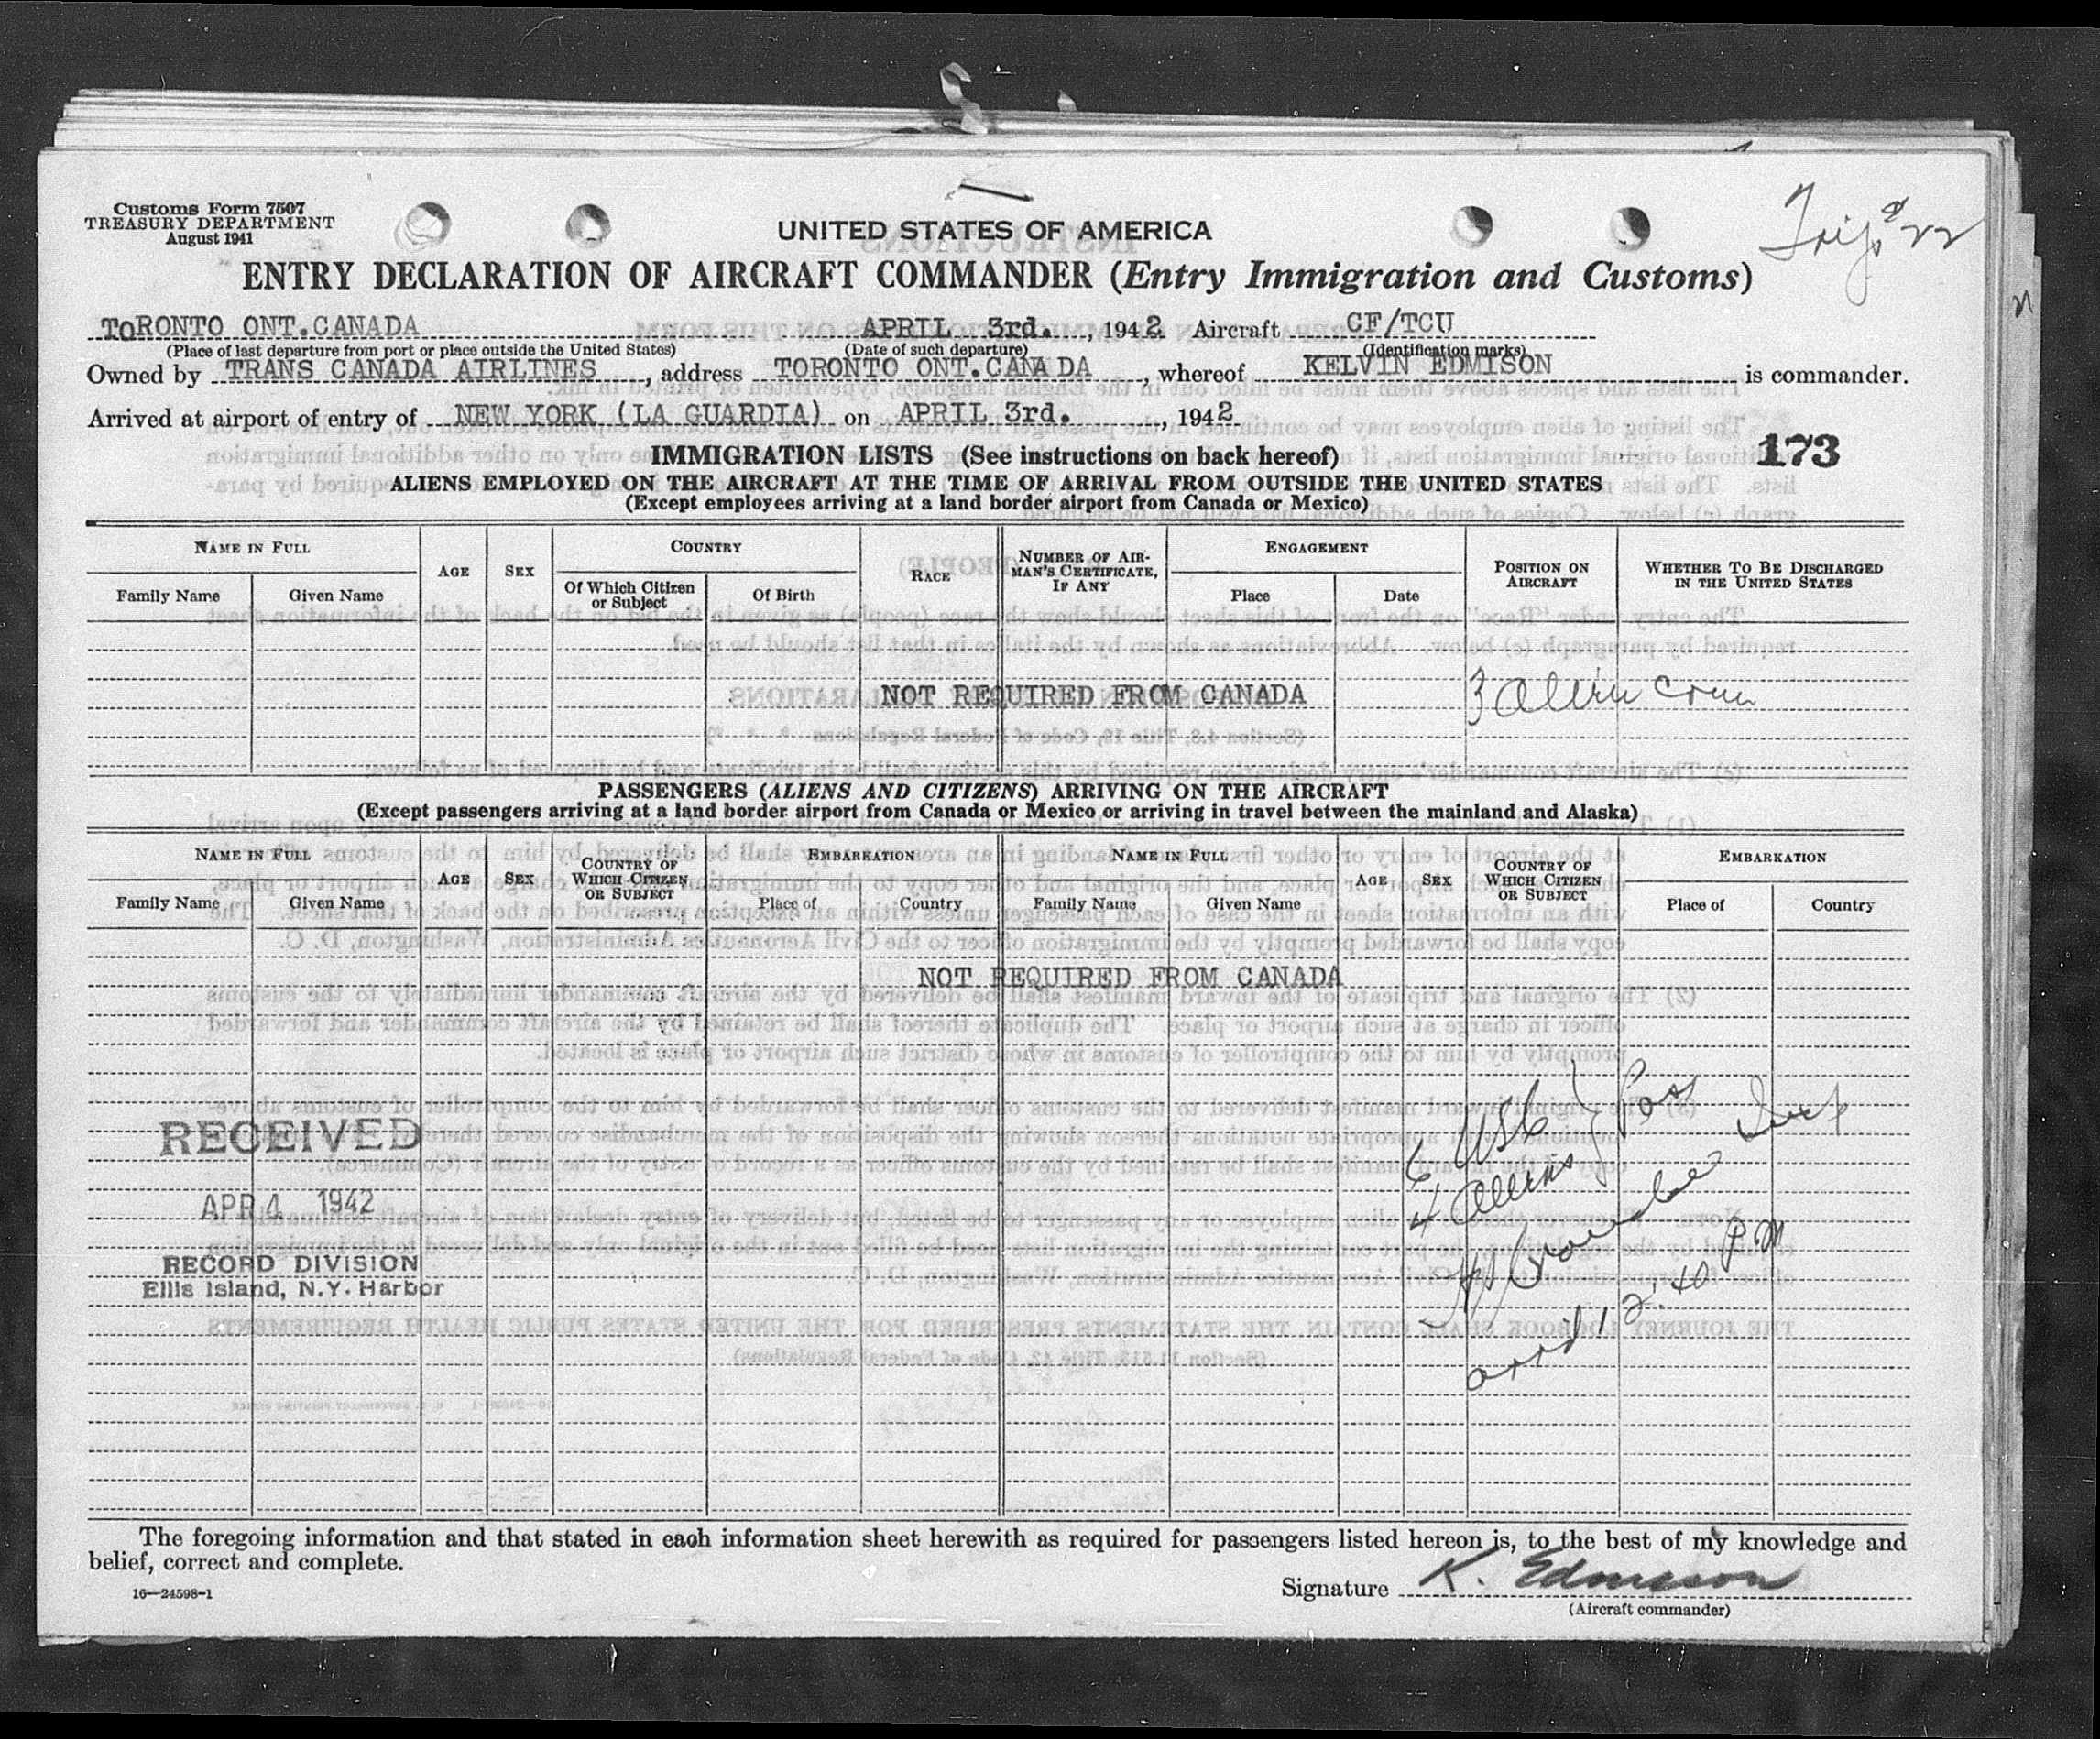 Customs Form 7507
TREASURY DEPARTMENT
August 1941
UNITED STATES OF AMERICA
ENTRY DECLARATION OF AIRCRAFT COMMANDER (Entry Immigration and Customs)
TORONTO ONT.CANADA APRIL 3rd., 1942 Aircraft CF/TCU
(Place of last departure from port or place outside the United States) (Date of such departure) (Identification marks)
Owned by TRANS CANADA AIRLINES, address TORONTO ONT.CANADA, whereof KELVIN EDMISON is commander.
Arrived at airport of entry of NEW YORK (LA GUARDIA) on APRIL 3rd., 1942
173
IMMIGRATION LISTS (See instructions on back hereof)
ALIENS EMPLOYED ON THE AIRCRAFT AT THE TIME OF ARRIVAL FROM OUTSIDE THE UNITED STATES
(Except employees arriving at a land border airport from Canada or Mexico)
NAME IN FULL AGE SEX COUNTRY RACE NUMBER OF AIRMAN'S CERTIFICATE, IF ANY ENGAGEMENT POSITION ON AIRCRAFT WHETHER TO BE DISCHARGED IN THE UNITED STATES
Family Name Given Name Of Which Citizen or Subject Of Birth Place Date
NOT REQUIRED FROM CANADA 3 Alien Crew
PASSENGERS (ALIENS AND CITIZENS) ARRIVING ON THE AIRCRAFT
(Except passengers arriving at a land border airport from Canada or Mexico or arriving in travel between the mainland and Alaska)
NAME IN FULL AGE SEX COUNTRY OF WHICH CITIZEN OR SUBJECT EMBARKATION NAME IN FULL AGE SEX COUNTRY OF WHICH CITIZEN OR SUBJECT EMBARKATION
Family Name Given Name Place of Country Family Name Given Name Place of Country
NOT REQUIRED FROM CANADA
6 USC } Pass
4 Aliens
Insp
arrd 12:40 P.M
RECEIVED
APR 4 1942
RECORD DIVISION
Ellis Island, N.Y. Harbor
The foregoing information and that stated in each information sheet herewith as required for passengers listed hereon is, to the best of my knowledge and
belief, correct and complete.
Signature K. Edmison
(Aircraft commander)
16—24598-1